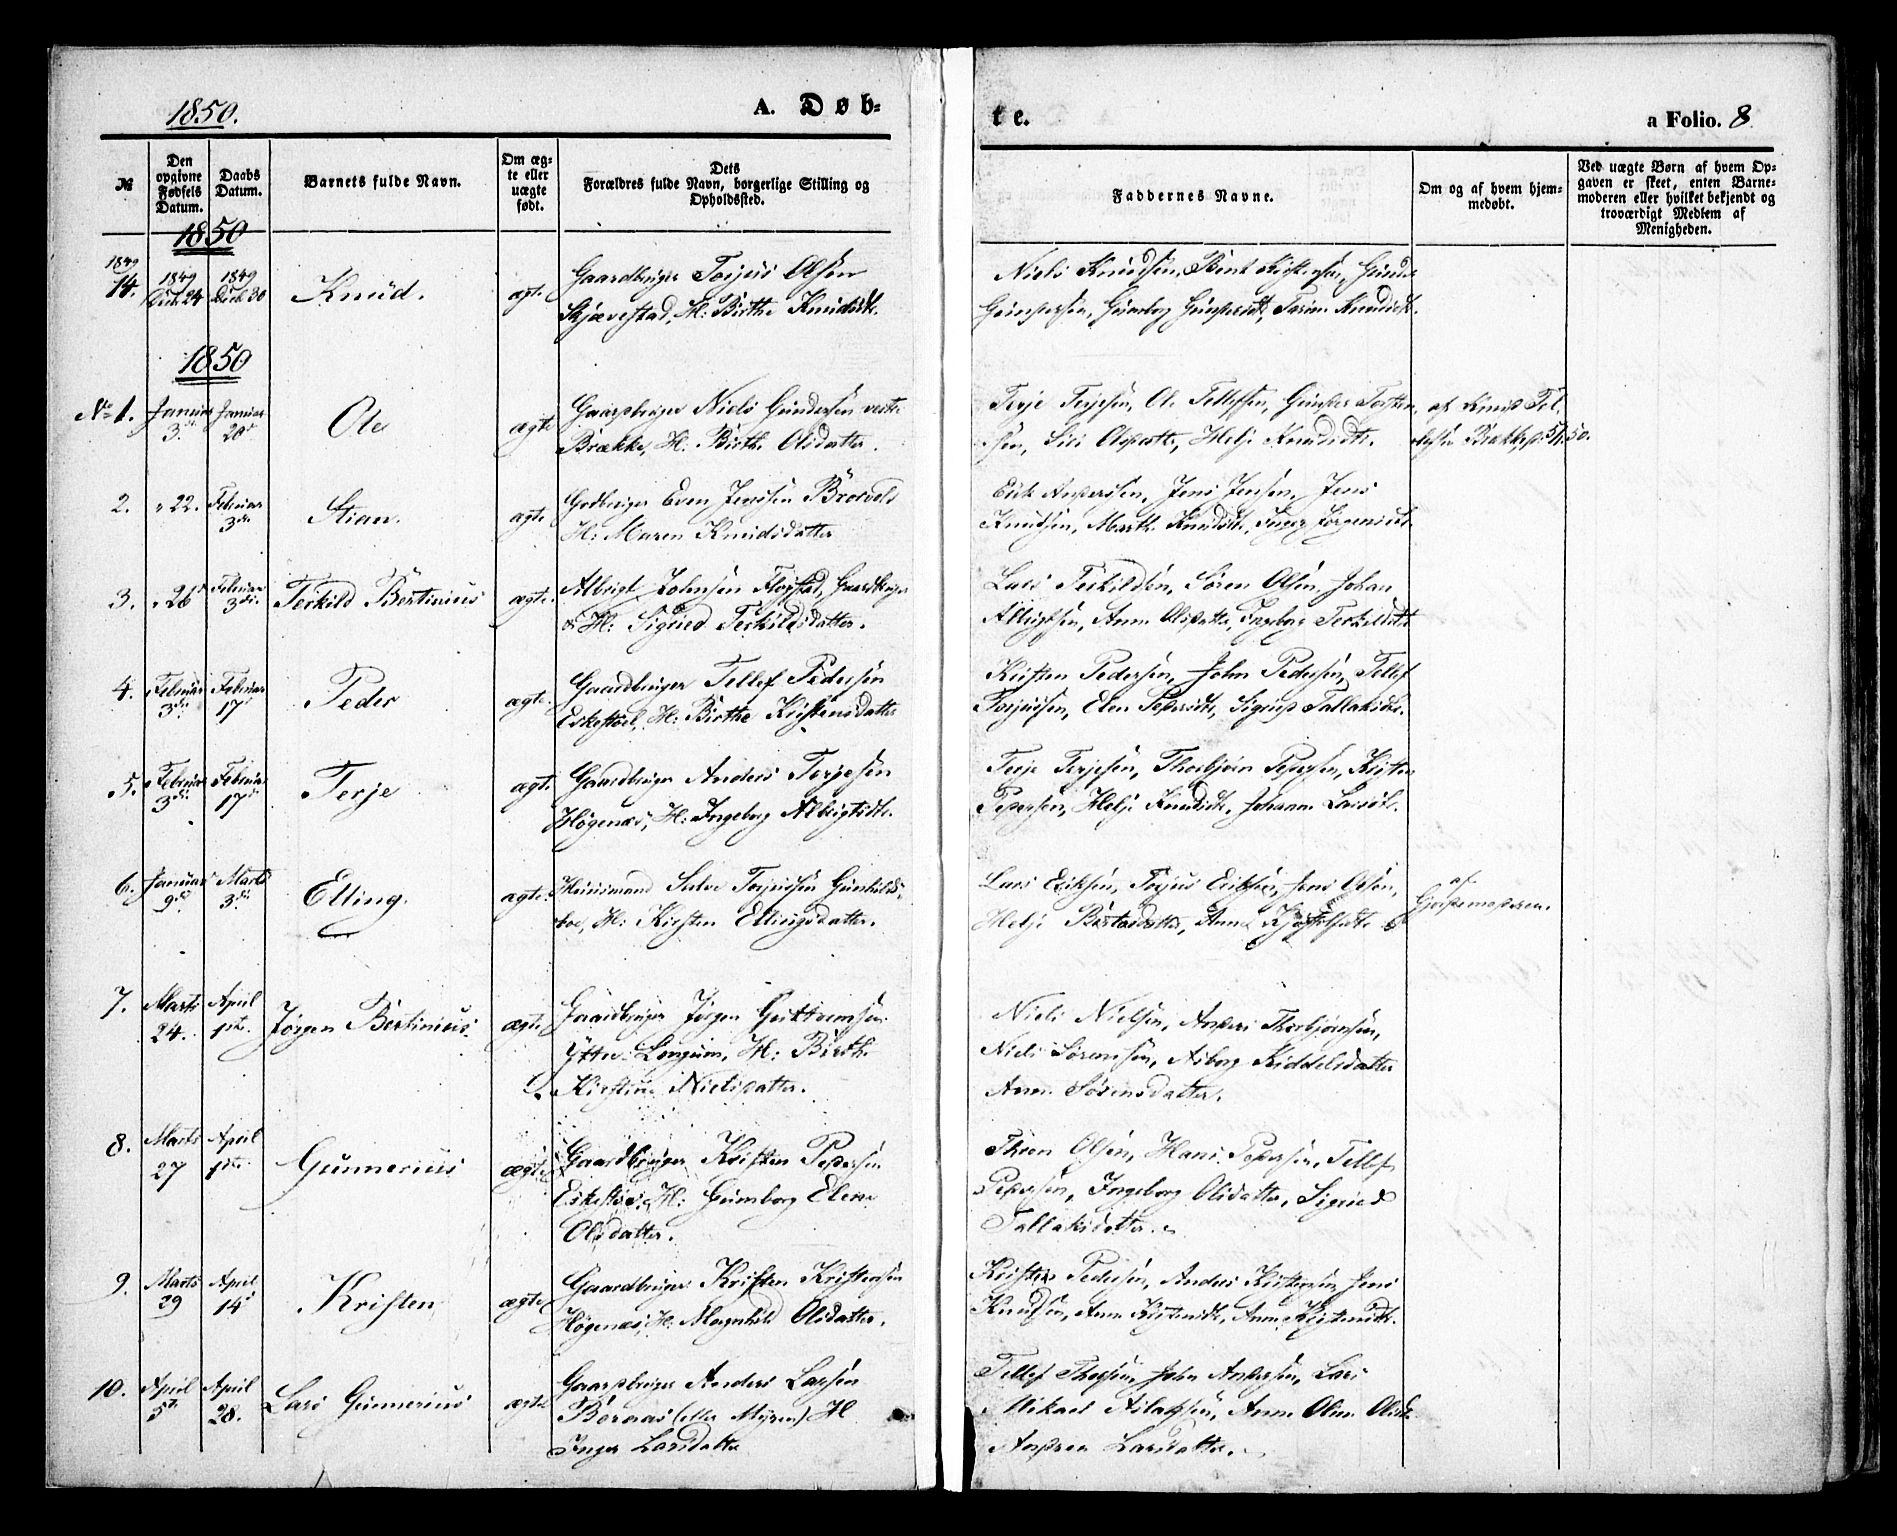 1850.
A. Døb-
te.
a Folio. 8
№
Den opgivne Fødsels Datum.
Daabs Datum.
Barnets fulde Navn.
Om ægte eller uægte født.
Dets Forældres fulde Navn, borgerlige Stilling og Opholdssted.
Faddernes Navne.
Om og af hvem hjemmedøbt.
Ved uægte Børn af hvem Opgaven er skeet, enten Barnemoderen eller hvilket bekjendt og troværdigt Medlem af Menigheden.
1850
1849
14.
1849
Dcb. 24
1849
Dcb 30
Knud.
ægte
Gaardbruger Torjus Olsen
Skjævestad, H: Birthe Knudsdt.
Niels Knudsen,
1850
No 1.
Januar
3die
Januar
20de
Ole
ægte
Gaardbruger Niels Gundersen vestre
Brække, H: Birthe Olsdatter.
Terje Terjesen, Ole Tellefsen, Gunder
sen, Siri Olsdatter, Helje Knudsdt.
af Knud Tel-
lefsen Brække
2.
" 22.
Februar
3die
Stian.
ægte
Gdbruger Even Jenssen
H: Maren Knudsdatter
Erik Anderssen, Jens Jensen, Jens
Knudsen, Marthe Knudsdt, Inger
3.
" 26
Februar
3die
Terkild Bertinius
ægte.
Albrigt Johnsen Flogstad, Gaardbruger
& H: Sigried Terkildsdatter.
Lars Terkildsen, Søren Olsen, Johan
Albrigtsen, Anne Olsdatter, Ingeborg Terkildsdt
4.
Februar
3die
Februar
17
Peder
ægte.
Gaardbruger Tellef Pedersen
H: Birthe Kristensdatter
Kristen Pedersen, John Pedersen, Tellef
Torjussen, Elen Pedersdt, Sigrid Tallaksdt.
5.
Februar
3die
Februar
17de
Terje
ægte.
Gaardbruger Anders Terjesen
Høgenæs, H: Ingeborg Albrigtsdt.
Terje Terjesen, Thorbjørn Pedersen, Kristen
Pedersen, Helje Knudsdt, Johanne Larsdt.
6.
Januar
9de
Marts
3die
Elling.
ægte.
Huusmand Salve Torjussen Gunhilds-
boe, H: Kirsten Ellingsdatter.
Lars Eriksen, Torjus Eriksen, Jens Olsen,
Helje
af
Gjordemoderen.
7.
Marts
24.
April
1ste
Jørgen Bertinius
ægte
Gaardbruger Jørgen Guttormsen
Yttre Longum, H: Birthe
Kirstine Nielsdatter.
Niels Nielsen, Anders Thorbjørnsen,
Niels Sørensen, Asborg Kiddelsdatter
Anne Sørensdatter.
8.
Marts
27
April
1ste
Gunnerius
ægte
Gaardbruger Kristen Pedersen
H: Gunborg Elene
Olsdatter.
Thron Olsen, Hans Pedersen, Tellef
Pedersen, Ingeborg Olsdatter, Sigried
Tallaksdatter.
9.
Marts
29
April
14
Kristen
ægte
Gaardbruger Kristen Kristensen
Høgenæs, H: Magnhild Olsdatter.
Kristen Pedersen, Anders Kristensen, Jens
Knudsen, Anne Kristensdt, Anne Kristensdt.
10.
April
5te
April
28.
Lars Gunnerius
ægte
Gaardbruger Anders Larsen
Boraas (eller Myren) H
Inger Larsdatter
Tellef John Andersen, Lars
Mikael Anne Oline Olsdt.
Andrea Larsdatter.